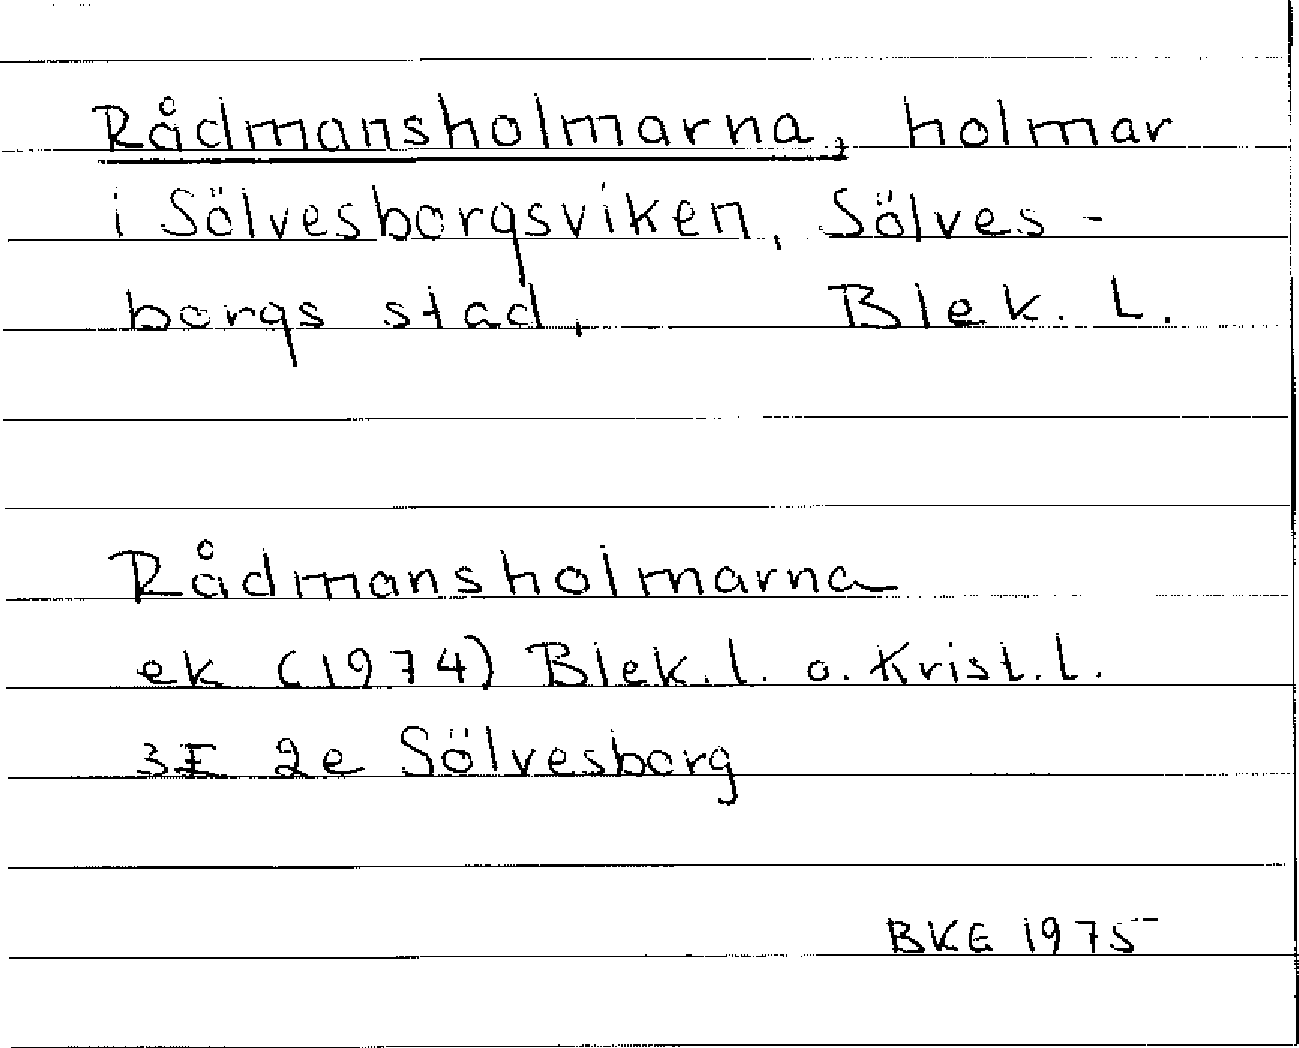 Rådmansholmarna, holmar
i Sölvesborgsviken, Sölves-
borgs stad, Blek. L.
Rådmansholmarna
ek (1974) Blek. l. o. Krist. l.
3E 2e Sölvesborg
BKE 1975